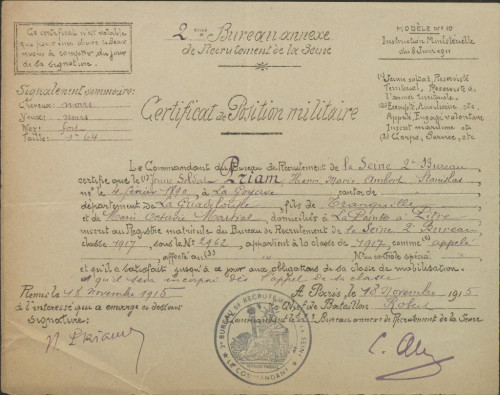 2ème Bureau annexe
de Recrutement de la Seine
Ce certificat n'est valable
que pour une durée de deux
mois à compter du jour
de la signature.
MODÈLE Nº 10
Instruction Ministérielle
du 8 Juin 1911
(1) Jeune soldat, Réserviste
Territorial, Réserviste de
l'armée territoriale.
(2) Exempté, Auxiliaire etc.
Appelé, Engagé volontaire
Inscrit maritime etc
(3) Corps, Service, etc.
Signalement sommaire:
Cheveux: noirs
Yeux: noirs
Nez: fort
Taille: 1m 64
Certificat de Position militaire
Le Commandant du Bureau de Recrutement de la Seine 2e Bureau
certifie que le (1) Jeune Soldat Priam, Henri Marie Stanislas
né le 4 février 1890, à La Goyave canton de
département de La Guadeloupe, fils de Tranquille
et de Marie Martial, domiciliés à La Pointe à Pitre
inscrit au Registre matricule du Bureau de Recrutement de la Seine 2e Bureau
classe 1917, sous le Nº 2462, appartient à la classe de 1917, comme (2) appelé
affecté au (3) Nº au contrôle spécial
et qu'il a satisfait jusqu'à ce jour aux obligations de sa classe de mobilisation.
et qu'il sera incorporé dès l'appel de sa classe
Remis le 18 Novembre 1915
A Paris, le 18 Novembre 1915
à l'intéressé qui a émargé ci-dessous
Le Chef de Bataillon Robert
Signature:
Commandant le 2e Bureau annexe de Recrutement de la Seine
H. Priam
BUREAU DE RECRUTEMENT
LE COMMANDANT